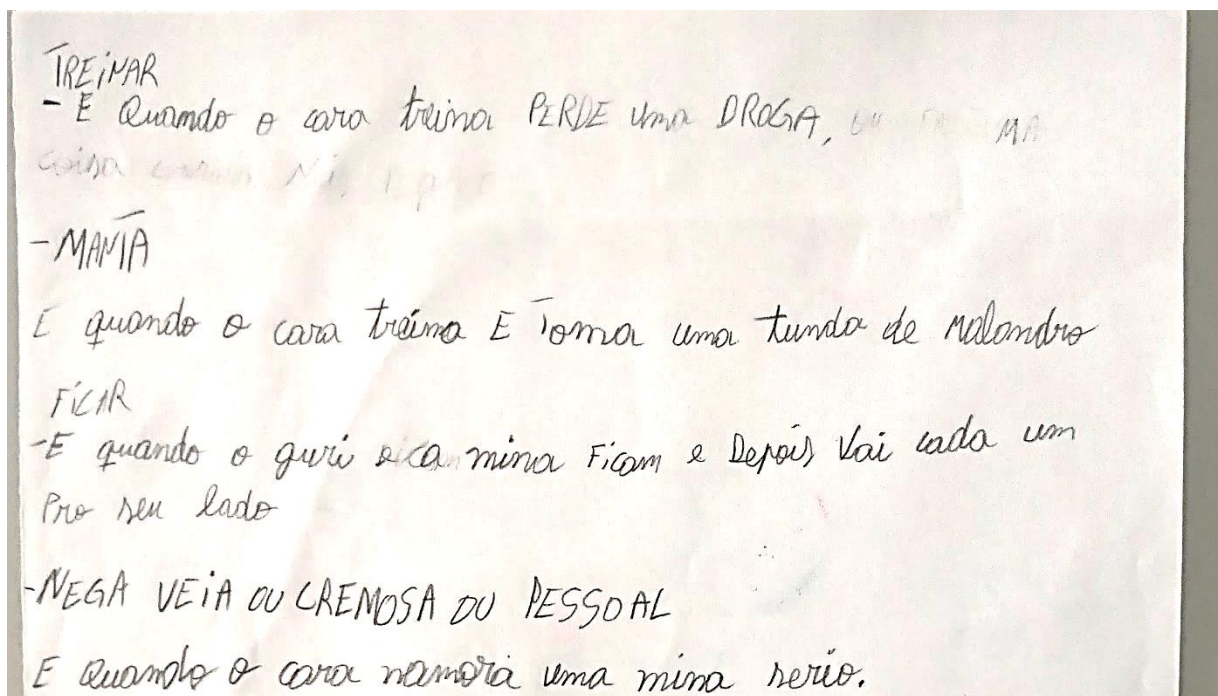 TREINAR
- E Quando o cara treina PERDE uma DROGA,
coisa
- MANTA
E quando o cara treina E Toma uma tunda de malandro
FICAR
- E quando o guri e a mina Ficam e Depois Vai cada um
Pro seu lado
- NEGA VEIA OU CREMOSA OU PESSOAL
E Quando o cara namora uma mina serio.